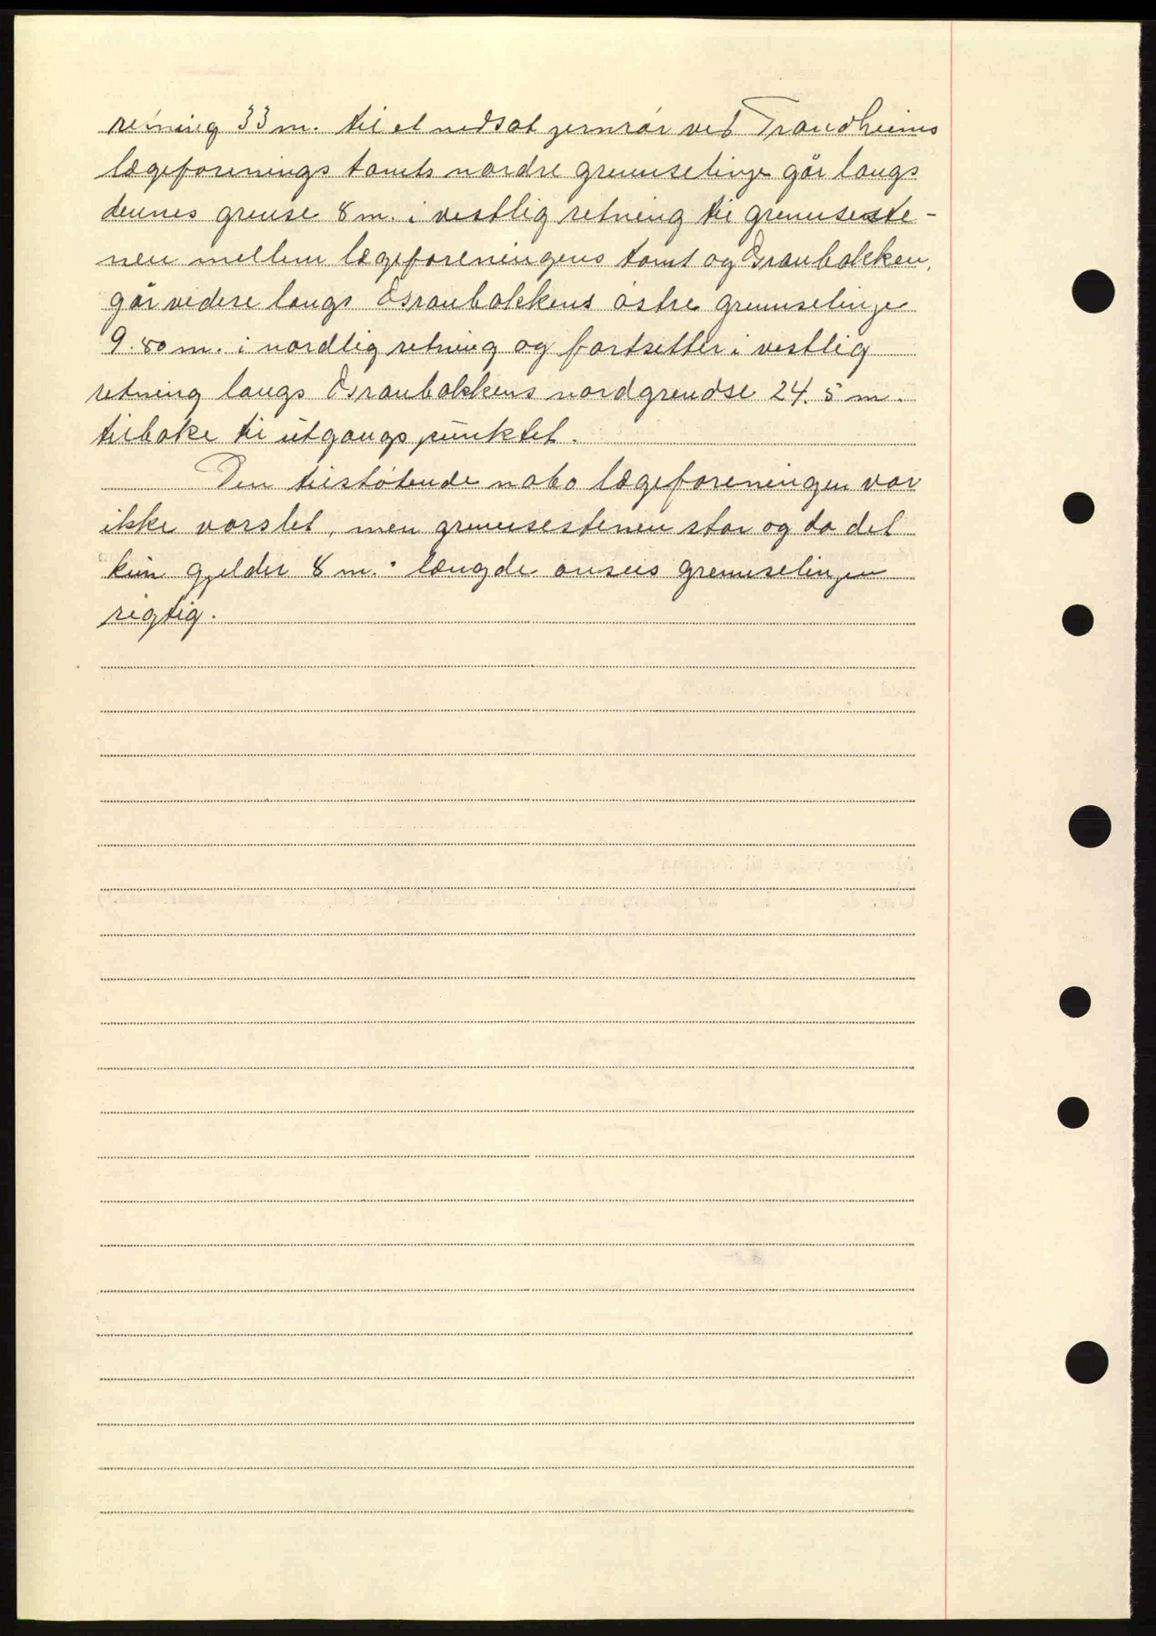 retning 33 m. til et nedsat jernrør ved Trondheims
lægeforenings tomts nordre grennselinje går langs
dennes grense 8 m. i vestlig retning til grennseste-
nen mellem lægeforeningens tomt og Granbakken,
går videre langs Granbakkens østre grennselinje
9.80 m. i nordlig retning og fortsetter i vestlig
retning langs Granbakkens nordgrendse 24.5 m.
tilbake til utgangspunktet.
Den tilstøtende nabo lægeforeningen var
ikke varslet, men grennsestenen star og da det
kun gjelder 8 m. længde ansees grennselinjen
rigtig.